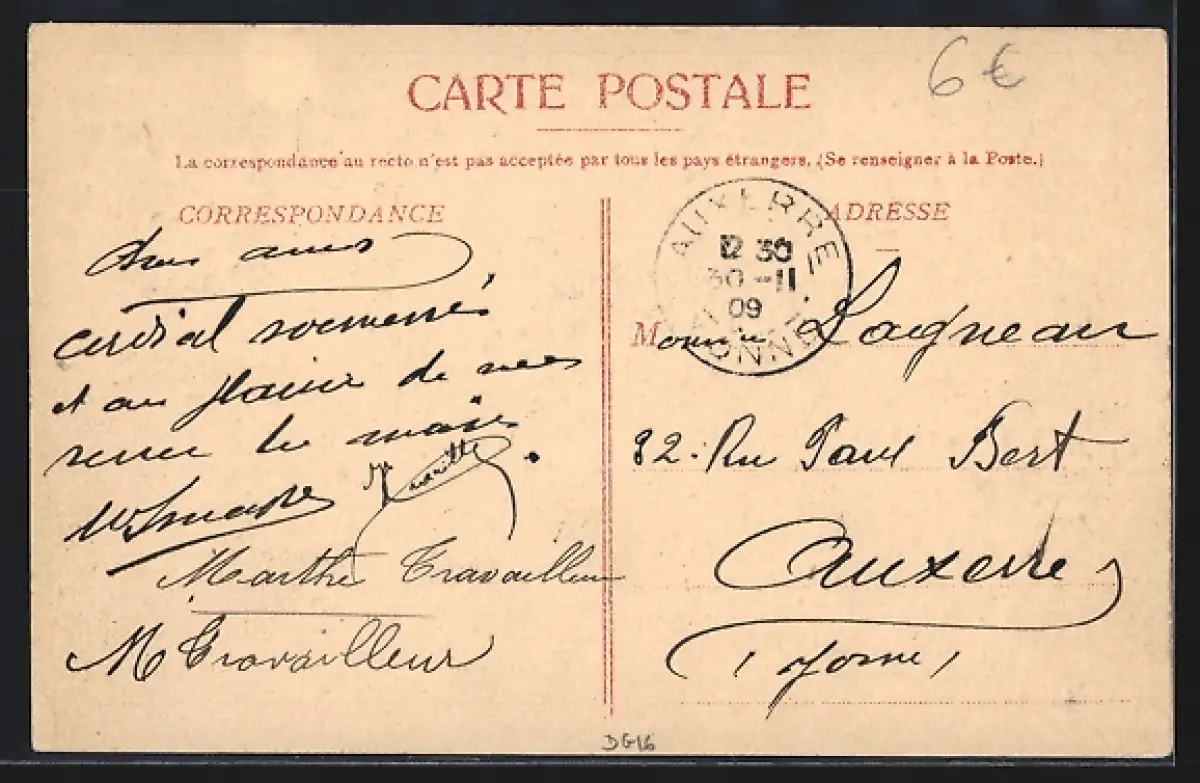 6€
CARTE POSTALE
La correspondance au recto n'est pas acceptée par tous les pays étrangers. (Se renseigner à la Poste.)
CORRESPONDANCE
ADRESSE
AUXERRE
12 30
30 - 11
09
YONNE
Chers amis
cordial
et au plaisir de
le mois
Marthe Travailleur
M Travailleur
M Laigneau
82. Rue Paul Bert
Auxerre
(Yonne)
DG16